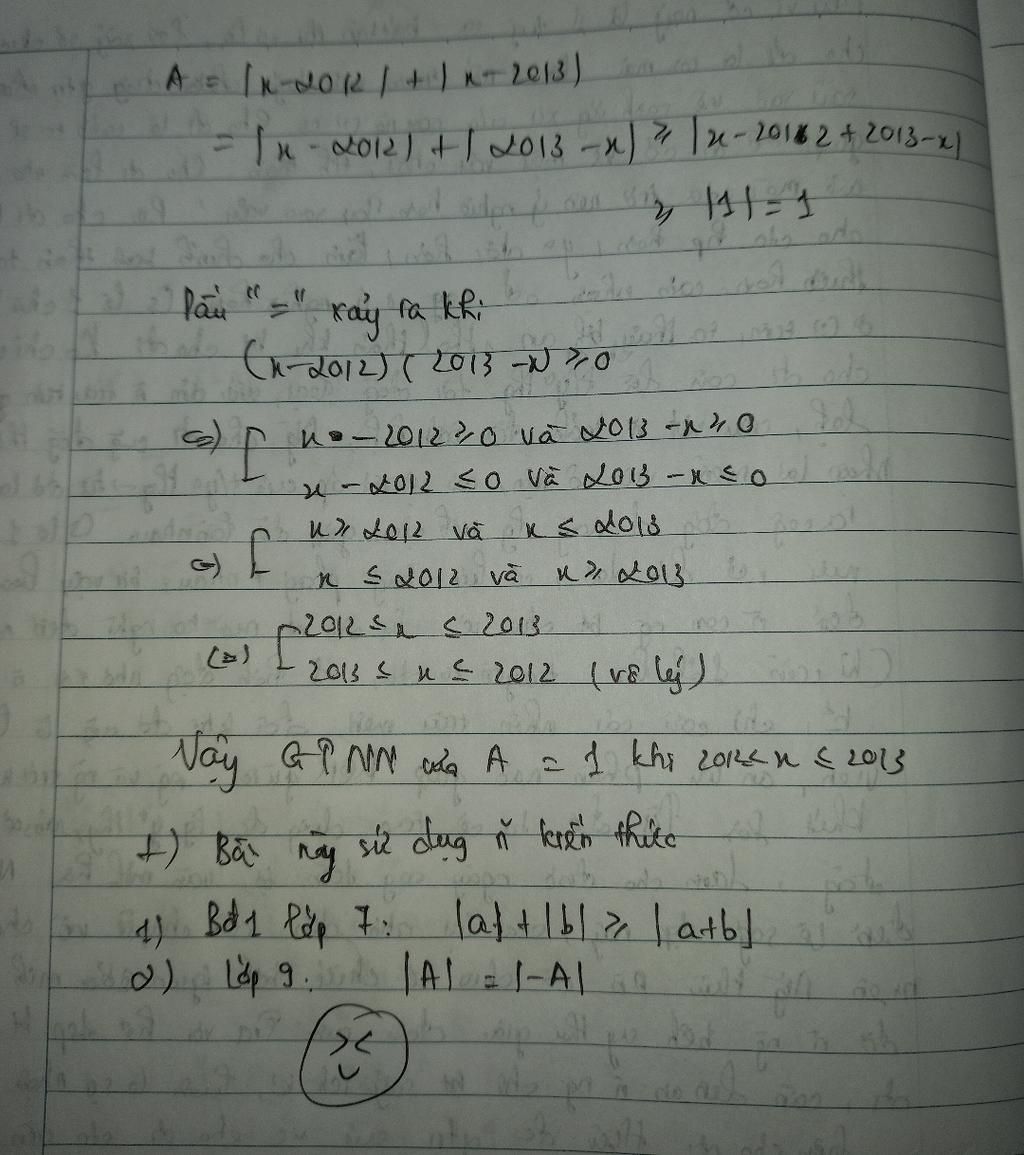 A = |x-2012| + |x-2013|
= |x-2012| + |2013-x| ≥ |x-2012+2013-x|
≥ |1| = 1
Dấu "=" xảy ra khi
(x-2012)(2013-x) ≥ 0
⇔ [ x-2012 ≥ 0 và 2013-x ≥ 0
x-2012 ≤ 0 và 2013-x ≤ 0
⇔ [ x ≥ 2012 và x ≤ 2013
x ≤ 2012 và x ≥ 2013
(=) [ 2012 ≤ x ≤ 2013
2013 ≤ x ≤ 2012 (vô lý)
Vậy GTNN của A = 1 khi 2012 ≤ x ≤ 2013
+) Bài này sử dụng ñ kiến thức
1) Bđ1 lớp 7: |a|+|b| ≥ |a+b|
2) lớp 9: |A| = |-A|